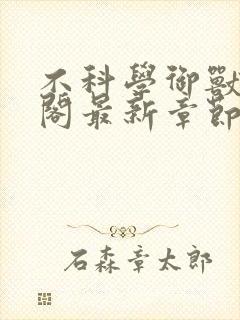 不科學御獸
閣最新章節
石森章太郎